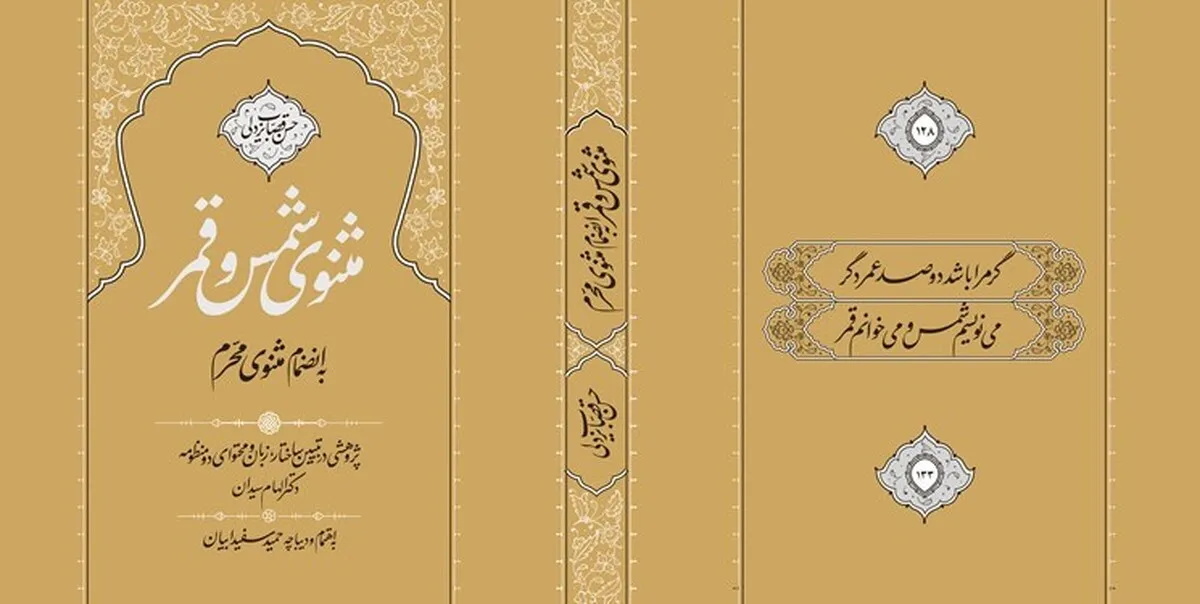 حسن قصاب یزدلی
مثنوی شمس و قمر
به انضمام مثنوی محرّم
پژوهشی در تبیین ساختار، زبان و محتوای دو منظومه
دکتر الهام سیدان
به اهتمام و دیباچه حمید سفیدابیان
مثنوی شمس و قمر به انضمام مثنوی محرّم
حسن قصاب یزدلی
۱۲۸
گر مرا باشد دو صد عمر دگر
می نویسم شمس و می خوانم قمر
۱۳۳